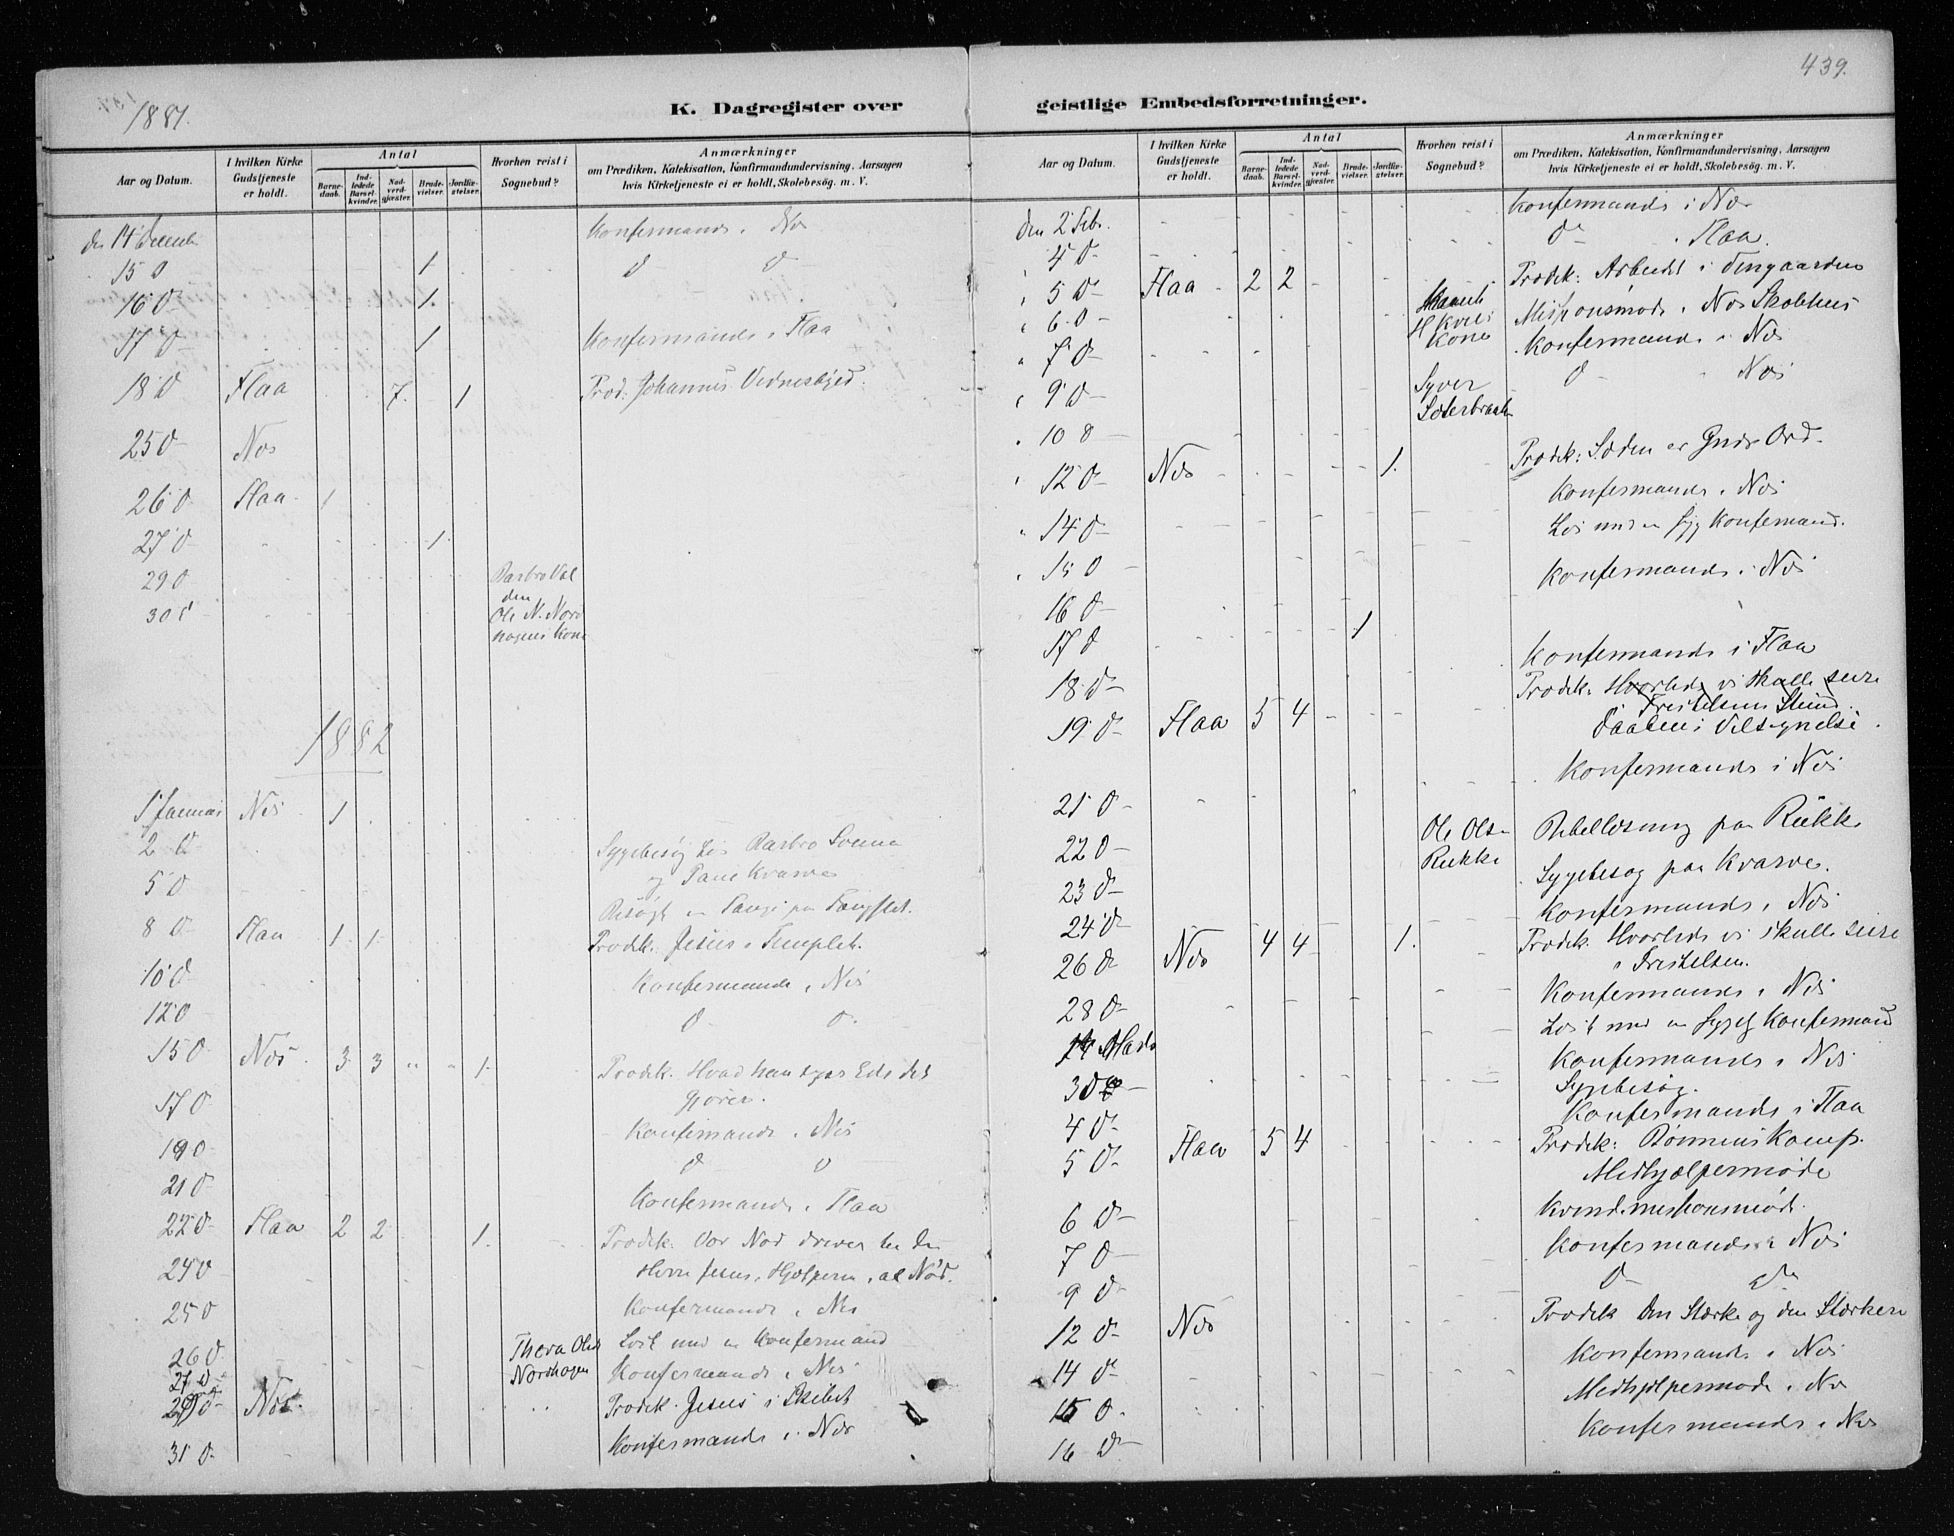 1881.
K. Dagregister over
Aar og Datum.
I hvilken Kirke Gudstjeneste er holdt.
Antal
Barnedaab.
Indledede Barselkvinder.
Nadverdgjester.
Brudevielser.
Jordfæstelser.
Hvorhen reist i Sognebud?
Anmærkninger
om Prædiken, Katekisation, Konfirmandundervisning, Aarsagen
hvis Kirketjeneste ei er holdt, Skolebesøg. m. V.
den 14 Decemb Konfermands. Næs
15 D 1 D D
16 D 1.
17 D 1 Konfermands i Flaa
18 D Flaa 7. 1 Præd: Johannes Vidnesbyrd.
25 D Næs
26 D Flaa 1
27 D 1.
29 D Barbro
den
30 D Ole N. Nord
hagens Kone
1882
1 Januar Næs 1
2 D Sygebesøg hos Barbro
5 D og Kvarve
Besøgt
8 D Flaa 1 1 Prædik. Jesus i Templet.
10 D Konfermands i Næs
12 D D D
15 D Næs 3 3 " " 1. Prædik. Hvad han siger Eder det
Gjører.
17 D Konfermands i Næs
19 D D D
21 D Konfermands i Flaa
22 D Flaa 2 2 1. Prædik. Vor Nød driver til den
Herre Jesus, Hjælperen i al Nød.
24 D Konfermands i Næs
25 D Læst med en Konfermand
26 D Thora Olsd Konfermands i Næs
27 D Nordhagen
29 D Næs. Prædik. Jesus i Skibet
31 D Konfermands i Næs
439.
geistlige Embedsforretninger.
Aar og Datum.
I hvilken Kirke Gudstjeneste er holdt.
Antal
Barnedaab.
Indledede Barselkvinder.
Nadverdgjester.
Brudevielser.
Jordfæstelser.
Hvorhen reist i Sognebud?
Anmærkninger
om Prædiken, Katekisation, Konfirmandundervisning, Aarsagen
hvis Kirketjeneste ei er holdt, Skolebesøg. m. V.
den 2 Feb. Konfermands i Næs
4 D D Flaa.
5 D Flaa 2 2 Prædik: Arbeidet i Vingaarden
6 D Missionsmøde i Næs Skolehus
Kone
7 D Konfermands i Næs
9 D Syver D Næs
Sæterbraaten
10 D
12 D Næs 1. Prædik: Sæden er Guds Ord.
14 D Konfermands i Næs
15 D Læs med en Syg Konfermand.
16 D Konfermands i Næs
17 D 1
18 D Konfermands i Flaa
19 D Flaa 5 4 Prædik. Hvorledes vi skulle seire
i Fristelsens Stund
Daabens Velsignelse.
21 D Konfermands i Næs
22 D Ole Olsen Bibellæsning paa Rukke
Rukke
23 D Sygebesøg paa Kvarve.
24 D Konfermands i Næs
26 D Næs 4 4 1. Prædik. Hvorledes vi skulle seire
i Fristelsen.
28 D Konfermands i Næs
Marts Læst med en Sygelig Konfermand
3 D Konfermands i Næs
Sygebesøg.
4 D Konfermands i Flaa
5 D Flaa 5 4 Prædik: Bønnens Kamp.
Medhjælpermøde
6 D Kvindemissionsmøde.
7 D Konfermands i Næs
9 D D D
12 D Næs Prædik Den Stærke og den Stærkere
14 D Konfermands i Næs
15 D Medhjælpermøde i Næs
16 D Konfermands i Næs